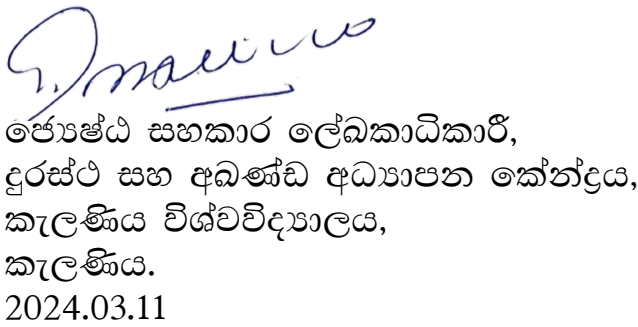 ජ්‍යෙෂ්ඨ සහකාර ලේඛකාධිකාරී,
දුරස්ථ සහ අඛණ්ඩ අධ්‍යාපන කේන්ද්‍රය,
කැලණිය විශ්වවිද්‍යාලය,
කැලණිය.
2024.03.11